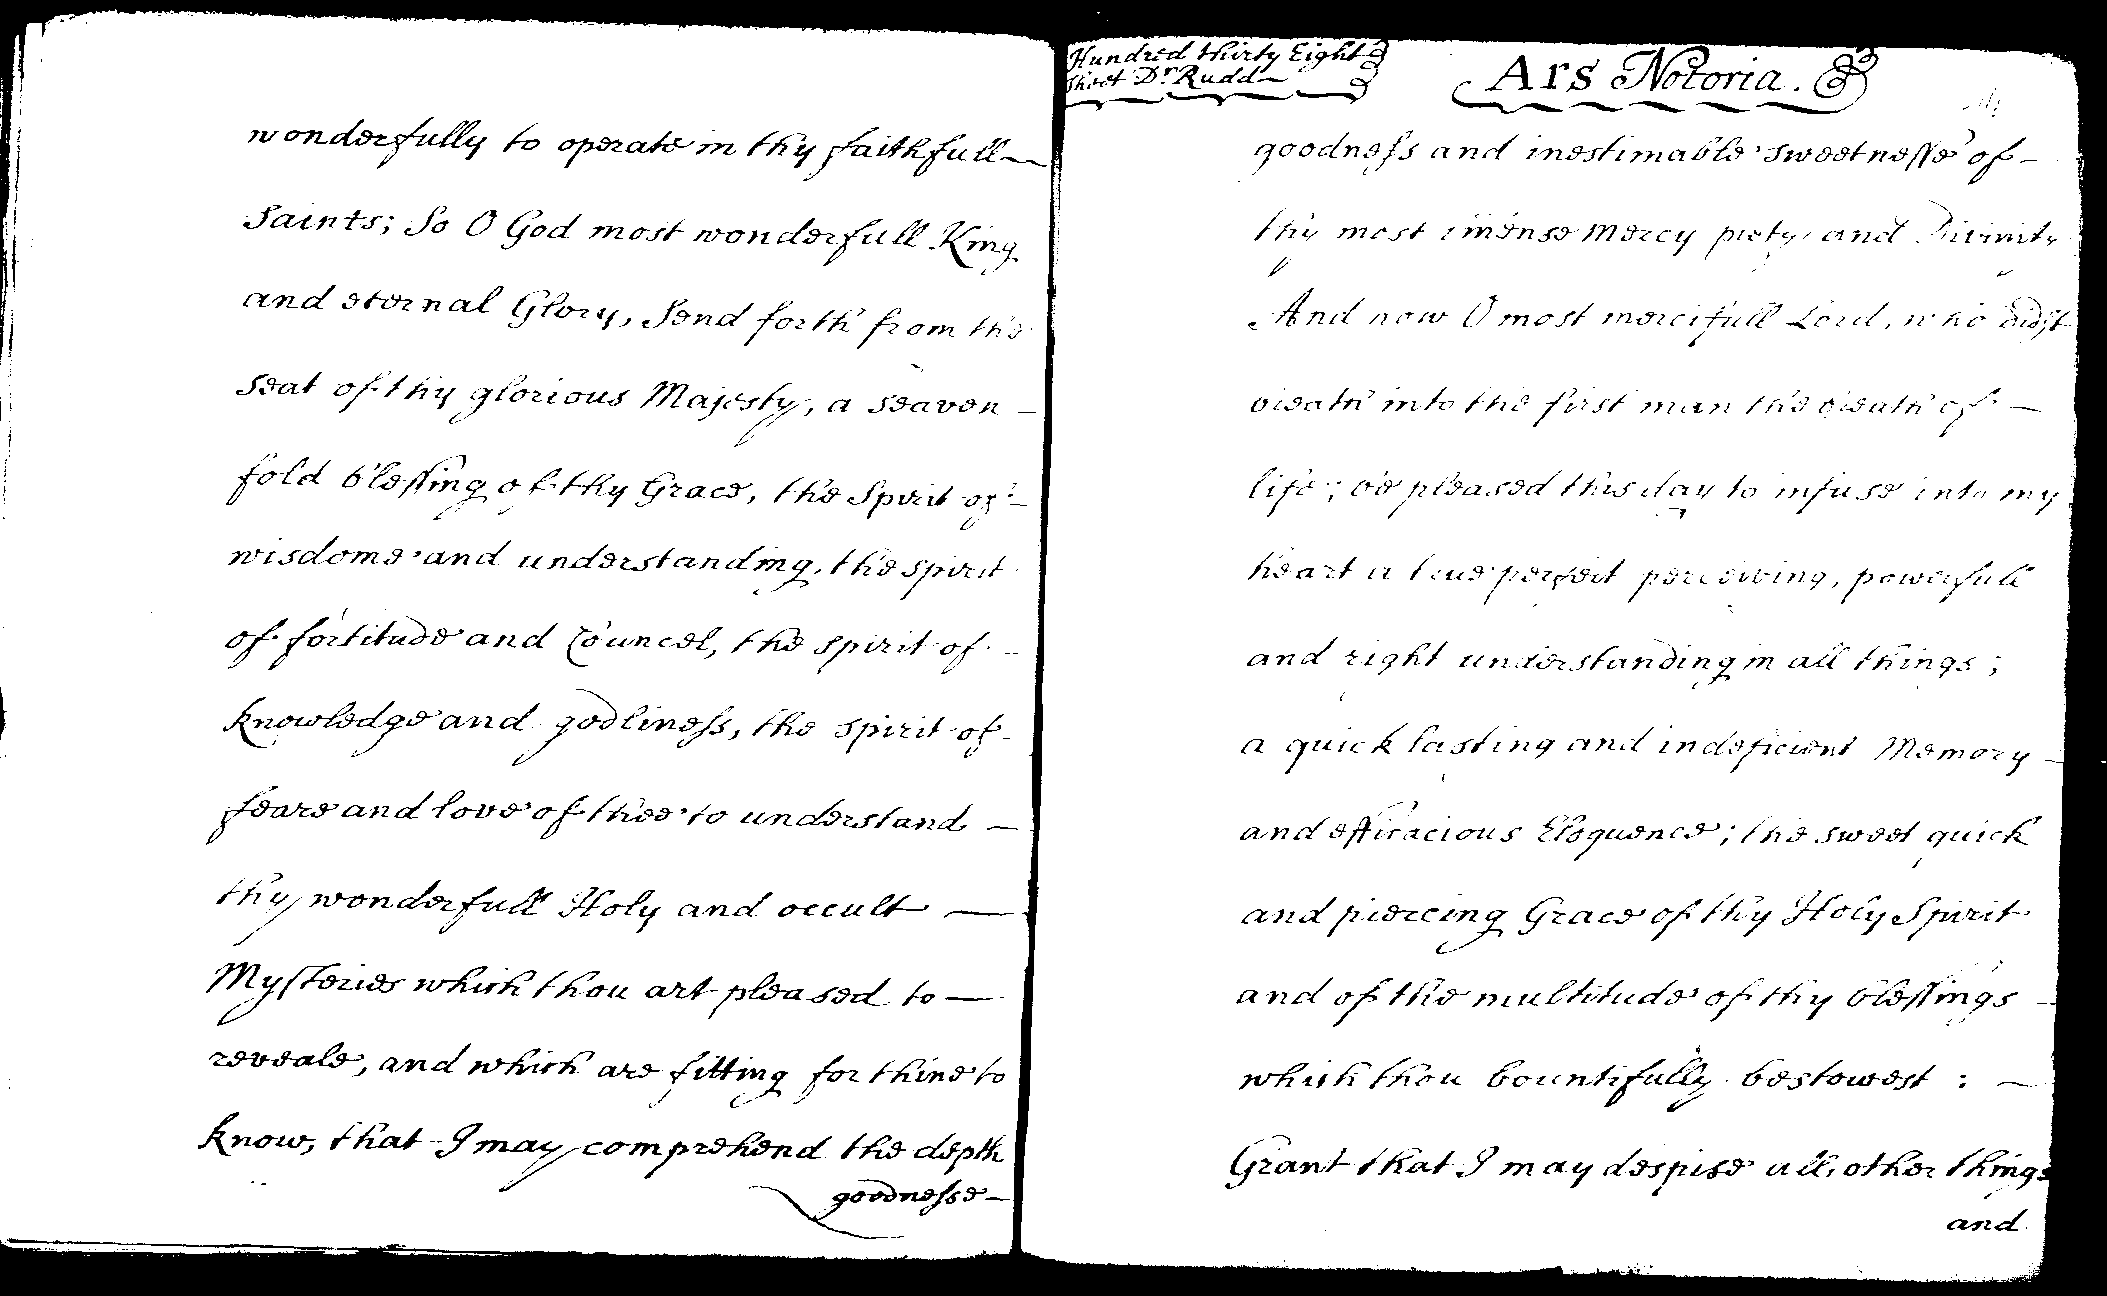 wonderfully to operate in thy faithfull
Saints; So O God most wonderfull King
and eternal Glory, Send forth from the
seat of thy glorious Majesty, a seaven
fold blessing of thy Grace, the Spirit of
wisdome and understanding, the spirit
of fortitude and Councel, the spirit of
knowledge and godliness, the spirit of
feare and love of thee to understand
thy wonderfull Holy and occult
Mysteries which thou art pleased to
reveale, and which are fitting for thine to
know, that I may comprehend the depth
goodnesse
Hundred thirty Eight
Sheet Dr Rudd
Ars Notoria.
goodness and inestimable sweetnesse of
thy most imense Mercy piety and Divinity
And now O most mercifull Lord, who didst
breath into the first man the breath of
life; be pleased this day to infuse into my
heart a true perfect perceiving, powerfull
and right understanding in all things;
a quick lasting and indeficient Memory
and efficacious Eloquence; the sweet quick
and piercing Grace of thy Holy Spirit
and of the multitude of thy blessings
which thou bountifully bestowest :
Grant that I may despise all other things
and